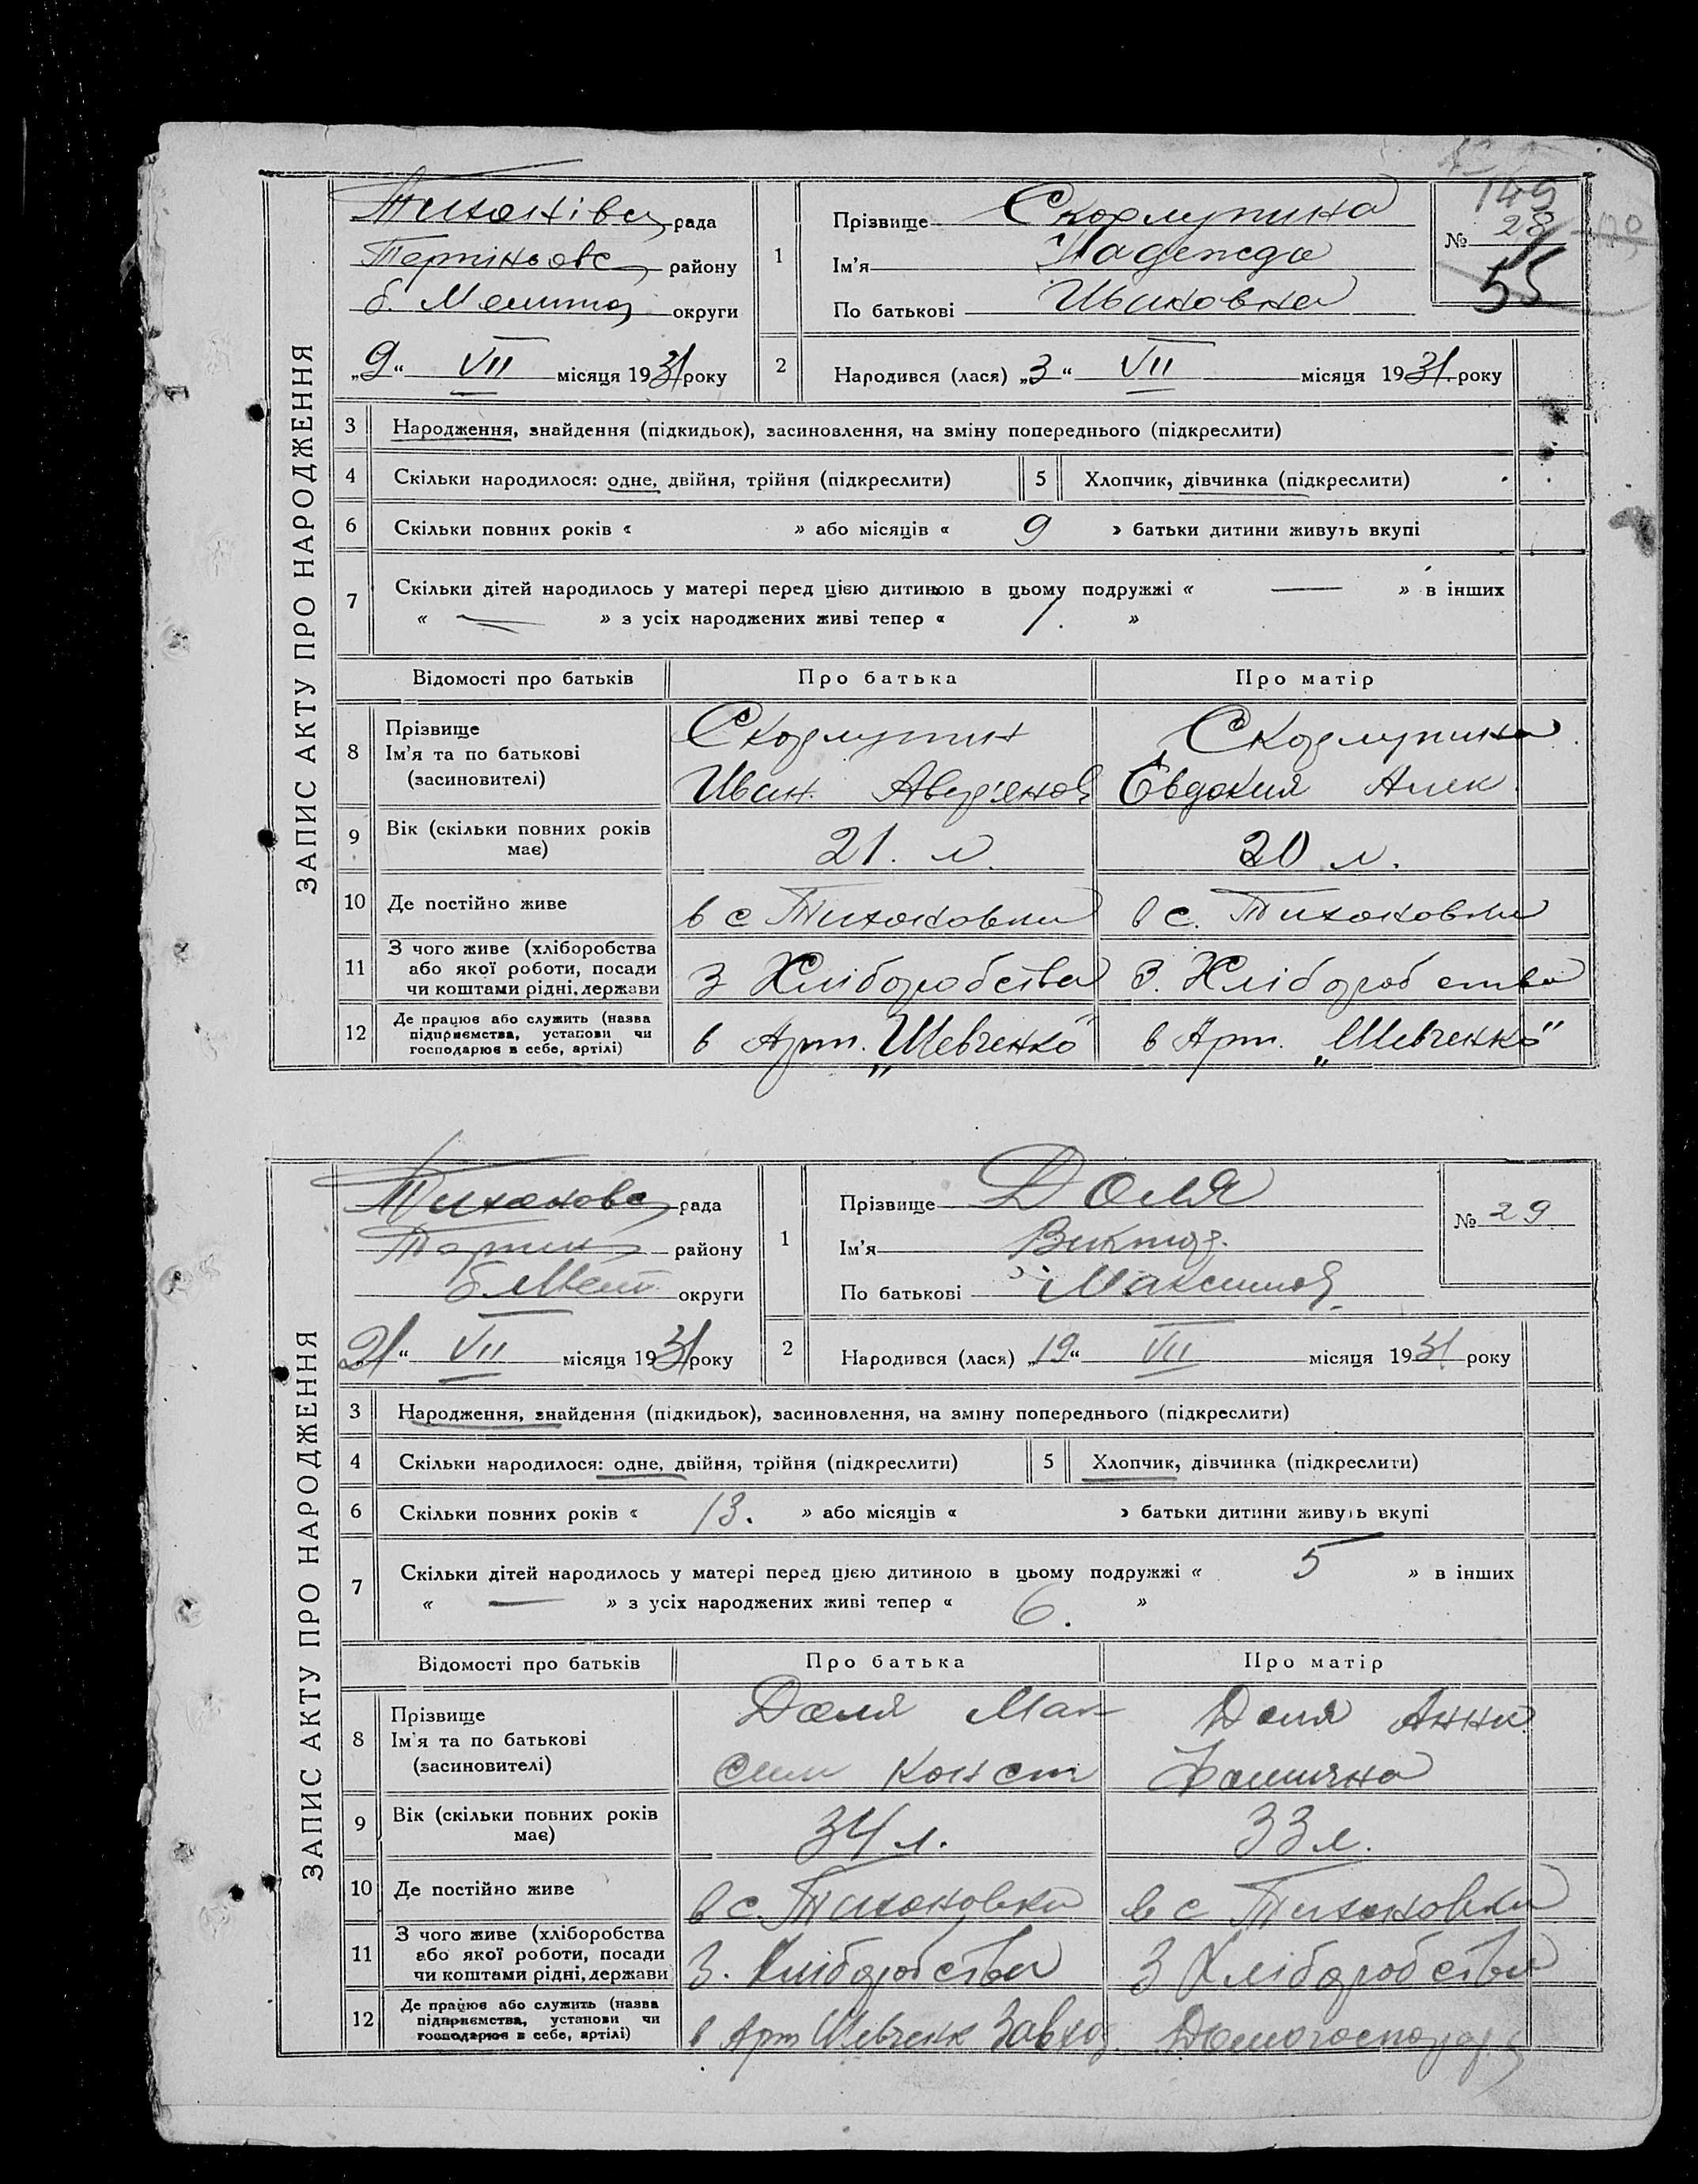 ЗАПИС АКТУ ПРО НАРОДЖЕННЯ
Тиханівс рада
району
б. Мелитоп округи
„9“ VII місяця 1931 року
1
Прізвище Скорлупина
Ім'я Надежда
По батькові Ивановна
№ 28
149
55
2
Народився (лася) „3“ VII місяця 1931 року
3 Народження, знайдення (підкидьок), засиновлення, на зміну попереднього (підкреслити)
4 Скільки народилося: одне, двійня, трійня (підкреслити) 5 Хлопчик, дівчинка (підкреслити)
6 Скільки повних років « » або місяців « 9 » батьки дитини живуть вкупі
7 Скільки дітей народилось у матері перед цією дитиною в цьому подружжі « — » в інших
« — » з усіх народжених живі тепер « 1. »
Відомості про батьків Про батька Про матір
8 Прізвище
Ім'я та по батькові
(засиновителі)
Скорлупин
Иван Авер'янов
Скорлупина
Евдокия Алек
9 Вік (скільки повних років
має)
21. л. 20 л.
10 Де постійно живе в с Тихоновки в с. Тихоновки
11 З чого живе (хліборобства
або якої роботи, посади
чи коштами рідні, держави
З Хліборобства З. Хліборобства
12 Де працює або служить (назва
підприємства, установи чи
господарює в себе, артілі)
в Арт. „Шевченко" в Арт. „Шевченко"
ЗАПИС АКТУ ПРО НАРОДЖЕННЯ
Тихоновс рада
району
б. Мелит. округи
21“ VII місяця 1931 року
1
Прізвище Доля
Ім'я Виктор.
По батькові Максимов.
№ 29.
2
Народився (лася) „19“ VII місяця 1931 року
3 Народження, знайдення (підкидьок), засиновлення, на зміну попереднього (підкреслити)
4 Скільки народилося: одне, двійня, трійня (підкреслити) 5 Хлопчик, дівчинка (підкреслити)
6 Скільки повних років « 13. » або місяців « » батьки дитини живуть вкупі
7 Скільки дітей народилось у матері перед цією дитиною в цьому подружжі « 5 » в інших
« — » з усіх народжених живі тепер « 6. »
Відомості про батьків Про батька Про матір
8 Прізвище
Ім'я та по батькові
(засиновителі)
Доля Мак
сим Конст
Доля Анна
Фомична
9 Вік (скільки повних років
має)
34 л. 33 л.
10 Де постійно живе в с. Тихоновки в с Тихоновки
11 З чого живе (хліборобства
або якої роботи, посади
чи коштами рідні, держави
З. Хліборобства З Хліборобства
12 Де працює або служить (назва
підприємства, установи чи
господарює в себе, артілі)
в Арт Шевченк Завхоз. Домогосподар